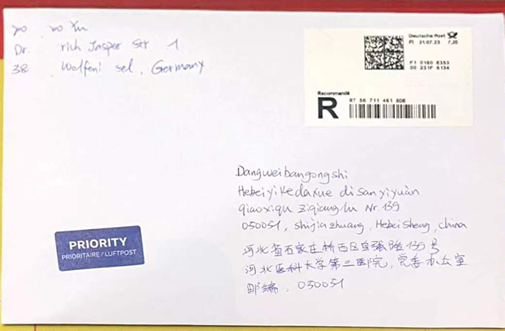 yo yo Xu
Dr. rich Jasper Str 1
38 Wolfeni sel, Germany
Deutsche Post
FI 21.07.23 7,20
F1 0160 8353
00 231F 9134
Recommandé
R
RT 56 711 461 5DE
Dangweibangongshi
Hebeiyikedaxue disanyiyuan
qiaoxiqu ziqianglu Nr. 139
050051, shijiazhuang, Hebeisheng, china
河北省石家庄桥西区自强路139号
河北医科大学第三医院,党委办公室
邮编.050051
PRIORITY
PRIORITAIRE / LUFTPOST